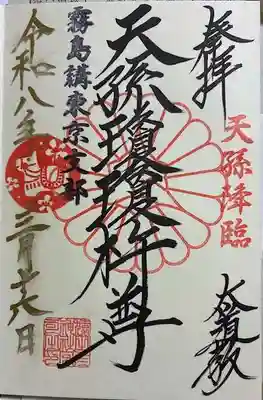 奉拝
天孫降臨
大道教
天孫瓊瓊杵尊
霧島講東京支部
令和八年三月十六日